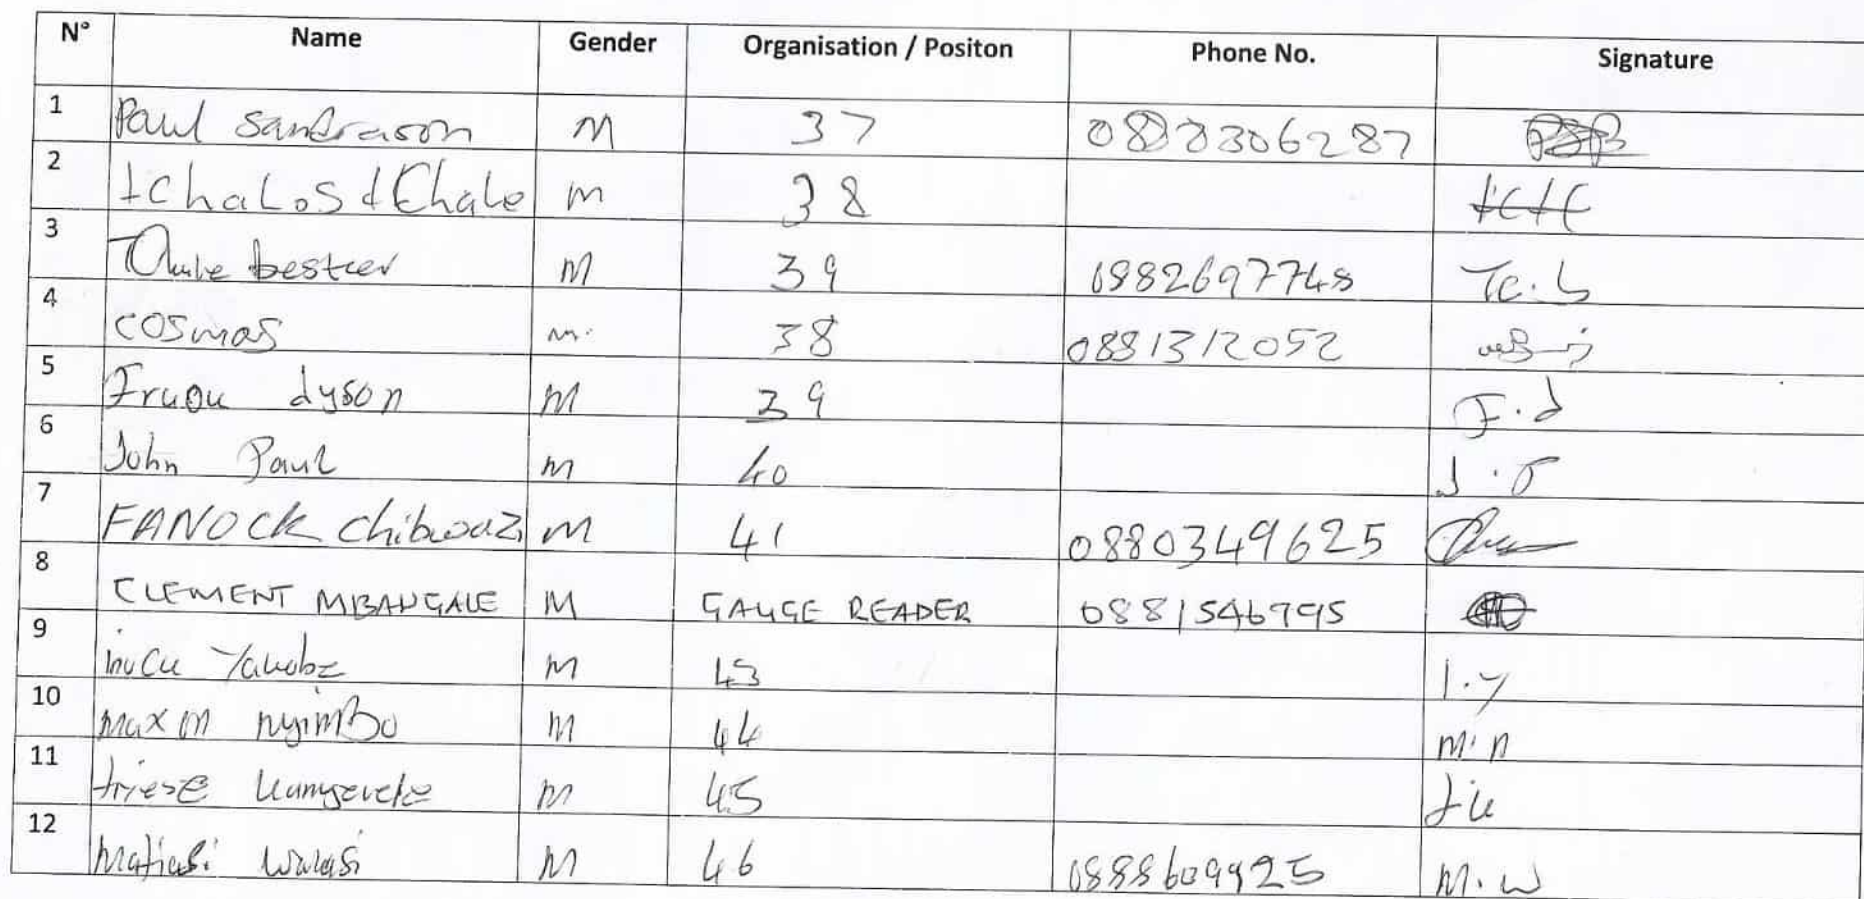 N° Name Gender Organisation / Positon Phone No. Signature
1 Paul Sandrason M 37 0888306287
2 tchaLos tChale m 38 tCtC
3 bester M 39 0882697748 Tc.b
4 cosmas m. 38 0881312052
5 dyson M 39 F.d
6 John Paul m 40 J.P
7 FANOCK Chibwazi M 41 0880349625
8 CLEMENT MBANGALE M GAUGE READER 0881546795
9 M 43 I.y
10 maxm nyimBo M 44 m.n
11 m 45 tk
12 Matiasi Walasi M 46 0888609925 M.W